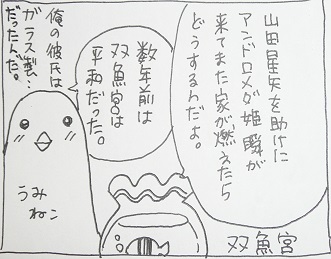 山田星矢を助けに
アンドロメダ姫瞬が
来てまた家が燃えたら
どうするんだよ。
数年前は
双魚宮は
平和だった。
俺の彼氏は
ガラス製…
だったんだ。
うみ
ねこ
双魚宮